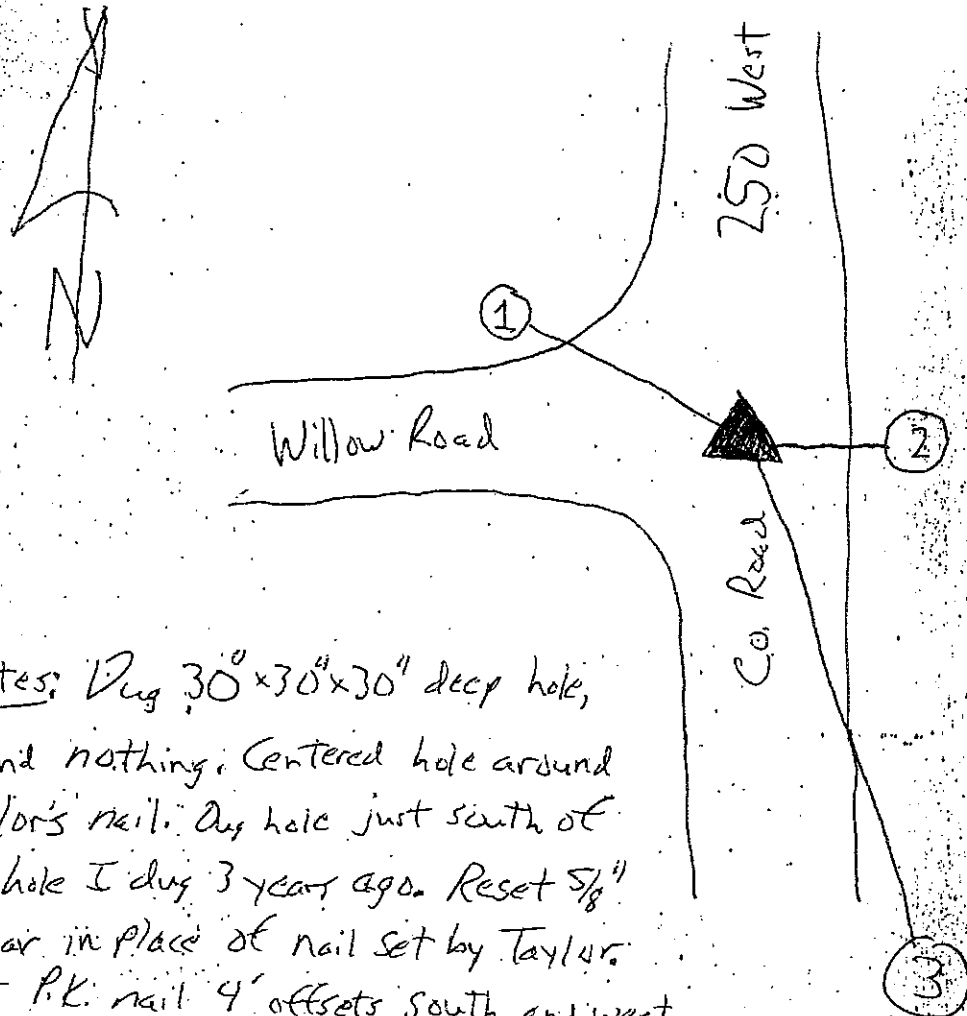 N
250 West
1
Willow Road
2
Co. Road
tes: Dug 30"x30"x30" deep hole,
nd nothing. Centered hole around
lor's nail. Dug hole just south of
hole I dug 3 years ago. Reset 5/8"
ar in place of nail set by Taylor.
P.K. nail 4' offsets south and west
3